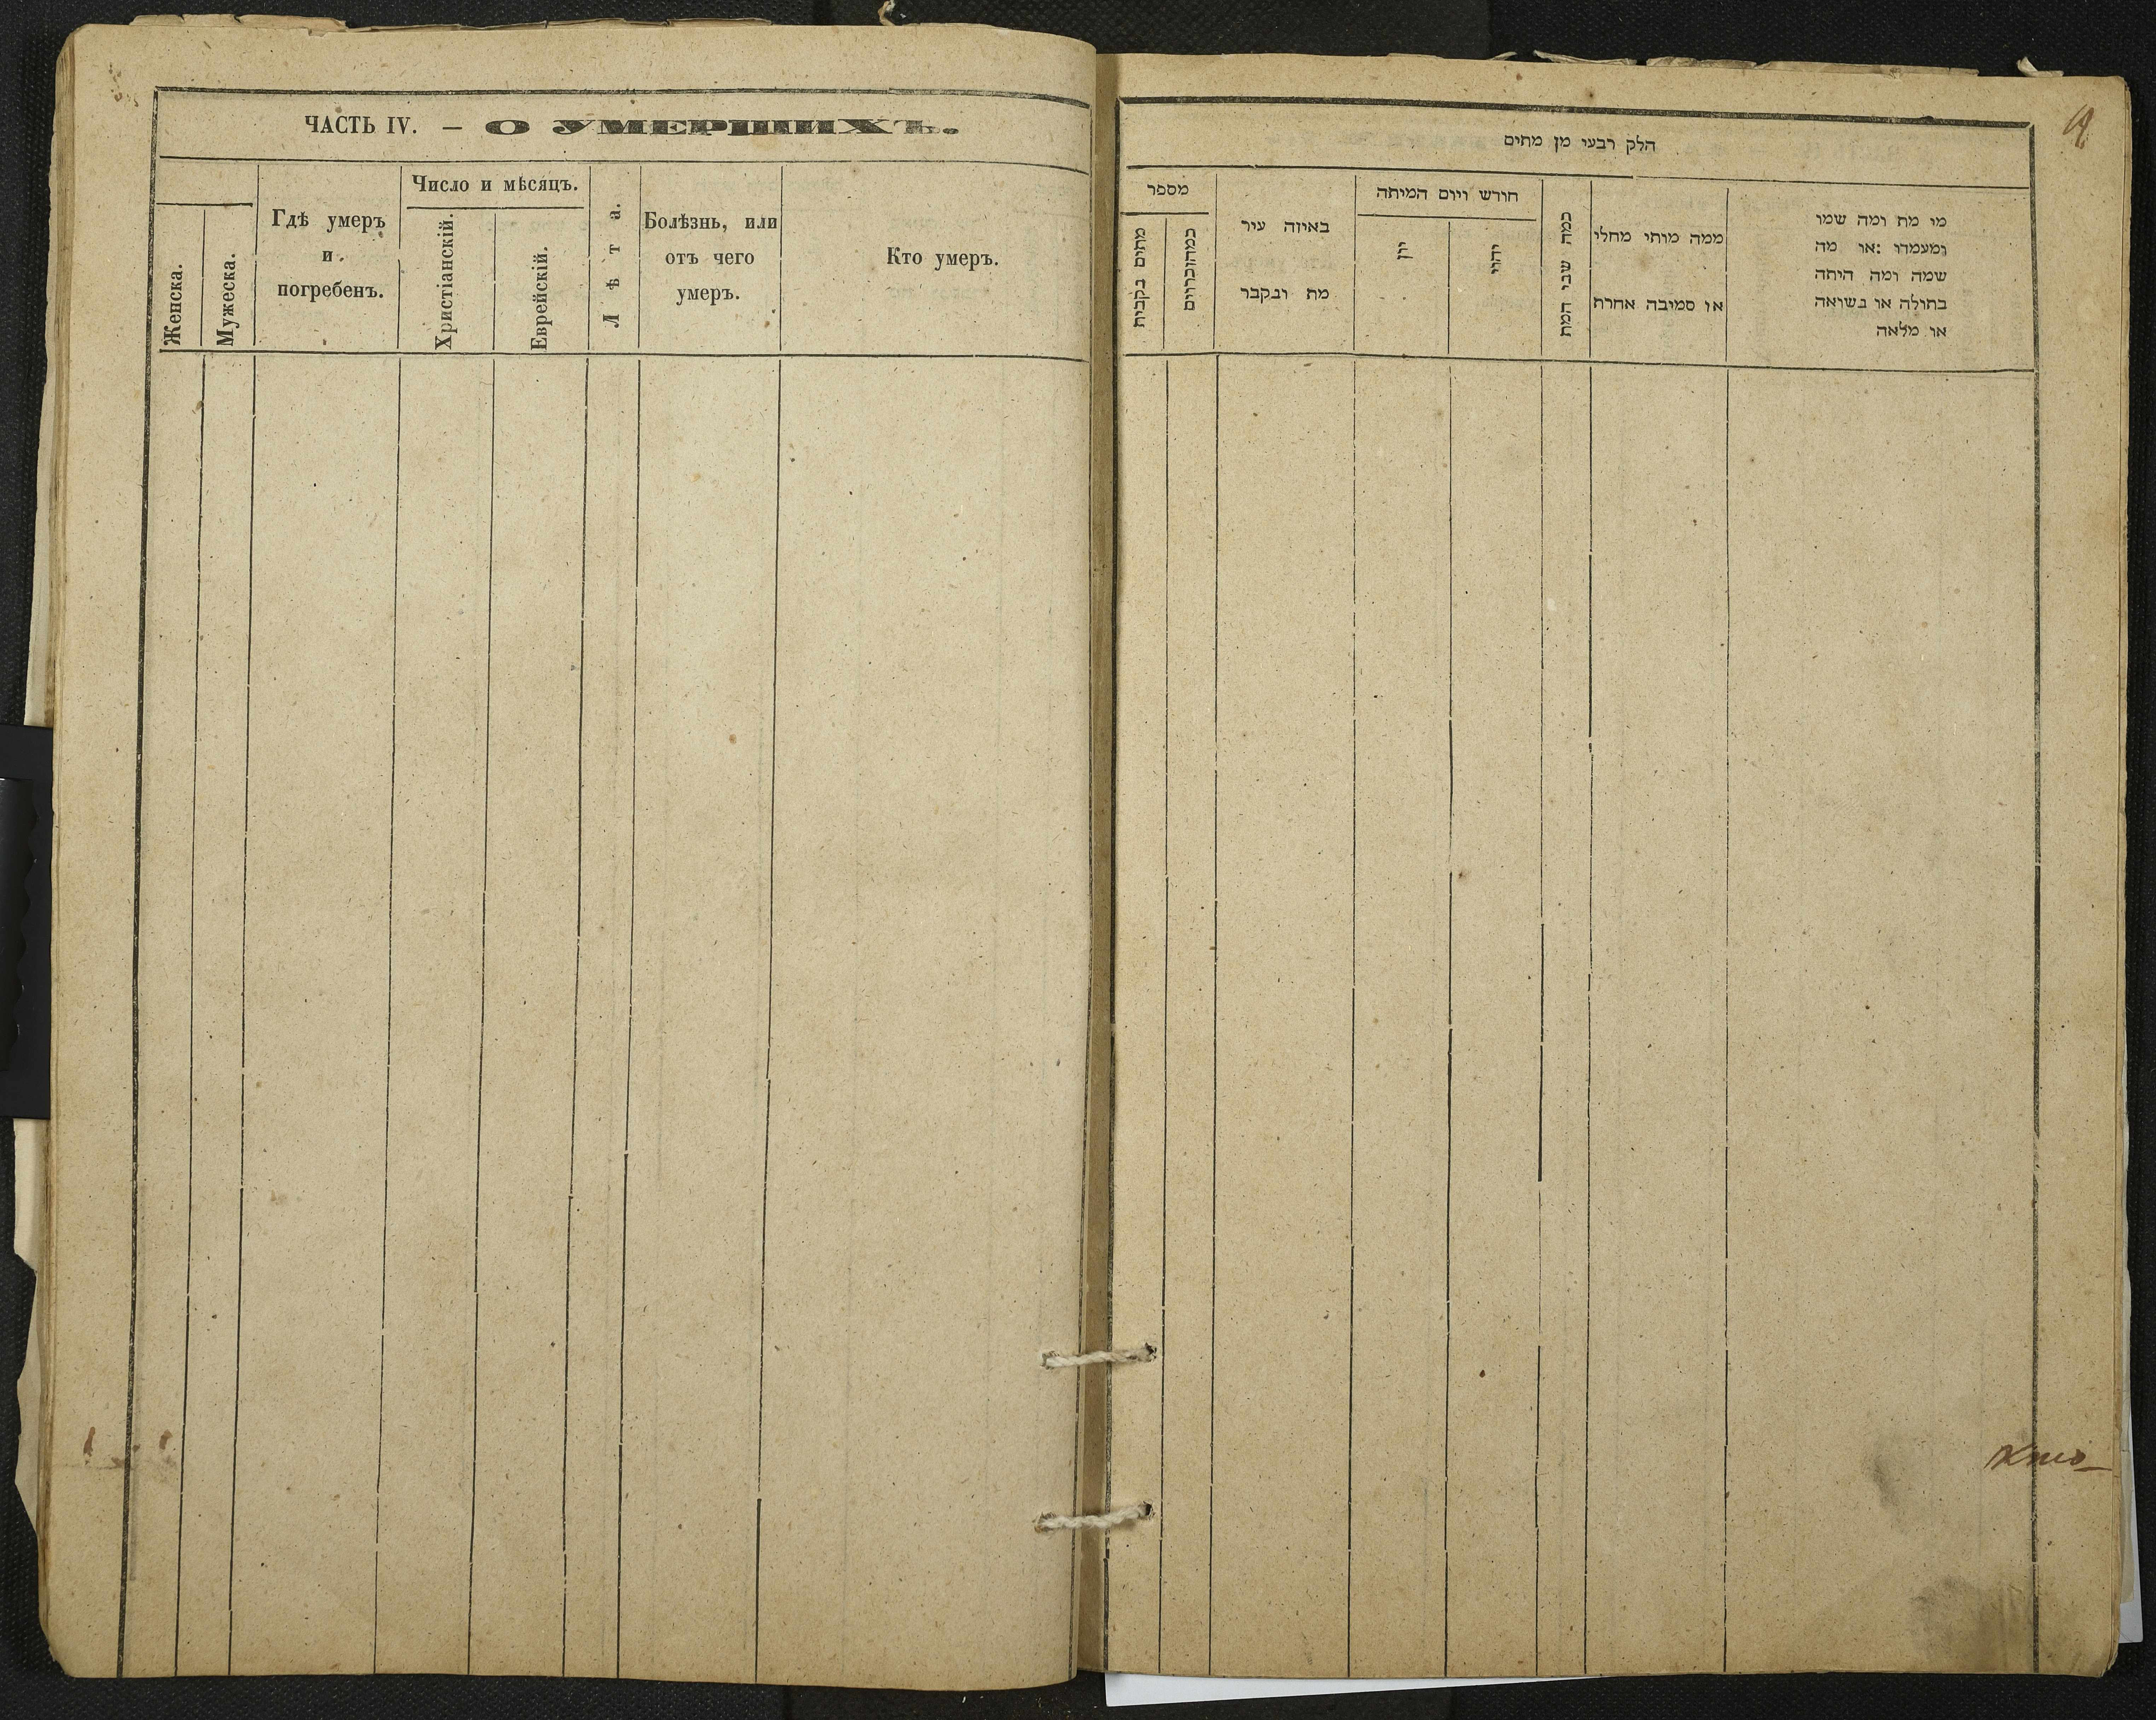 ЧАСТЬ IV. — О УМЕРШИХЪ.
Женска.
Мужеска.
Гдѣ умеръ
и
погребенъ.
Число и мѣсяцъ.
Христіанскій.
Еврейскій.
Лѣта.
Болѣзнь, или
отъ чего
умеръ.
Кто умеръ.
הלק רבעי מן מתים
מספר
באיזה עיר
מת ונקבר
חורש ויום המיתה
יון
יהוי
כמה שני המת
ממה מותי מחלי
או סמיבה אחרת
מו מת ומה שמו
ומעמדו :או מה
שמה ומה היתה
בתולה או נשואה
או מלאה